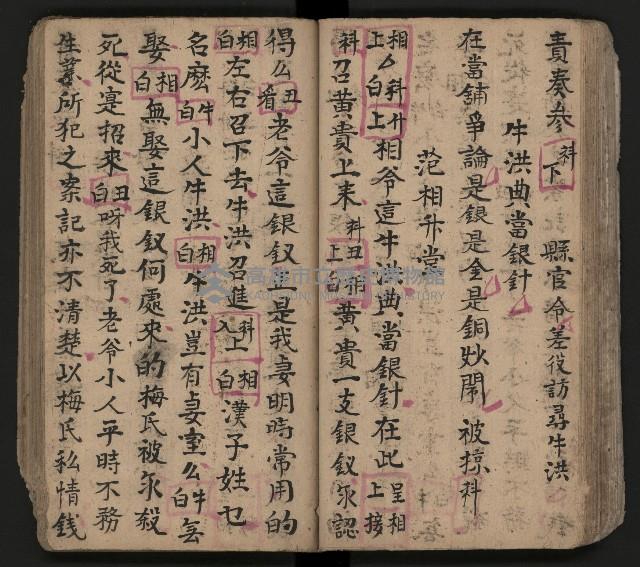 責奏參科下縣官令差役訪尋牛洪
牛洪典當銀針
在當舖爭論是銀是金是銅炒鬧被掠科
范相升堂
相上白科升上相爷這牛洪典當銀針在此呈相上接
科召黃貴上來科丑上相白黃貴一支銀釵永認
得么丑看老爷這銀釵正是我妻明時常用的
相白左右召下去牛洪召進科上入相白漢子姓乜
名麽牛白小人牛洪相白牛洪豈有妻室么牛白無
娶相白無娶這銀釵何處來的梅氏被永殺
死從寔招來丑白呀我死了老爷小人平時不務
生業所犯之案記亦不清楚以梅氏私情錢
高雄市立歷史博物館
KAOHSIUNG MUSEUM OF HISTORY